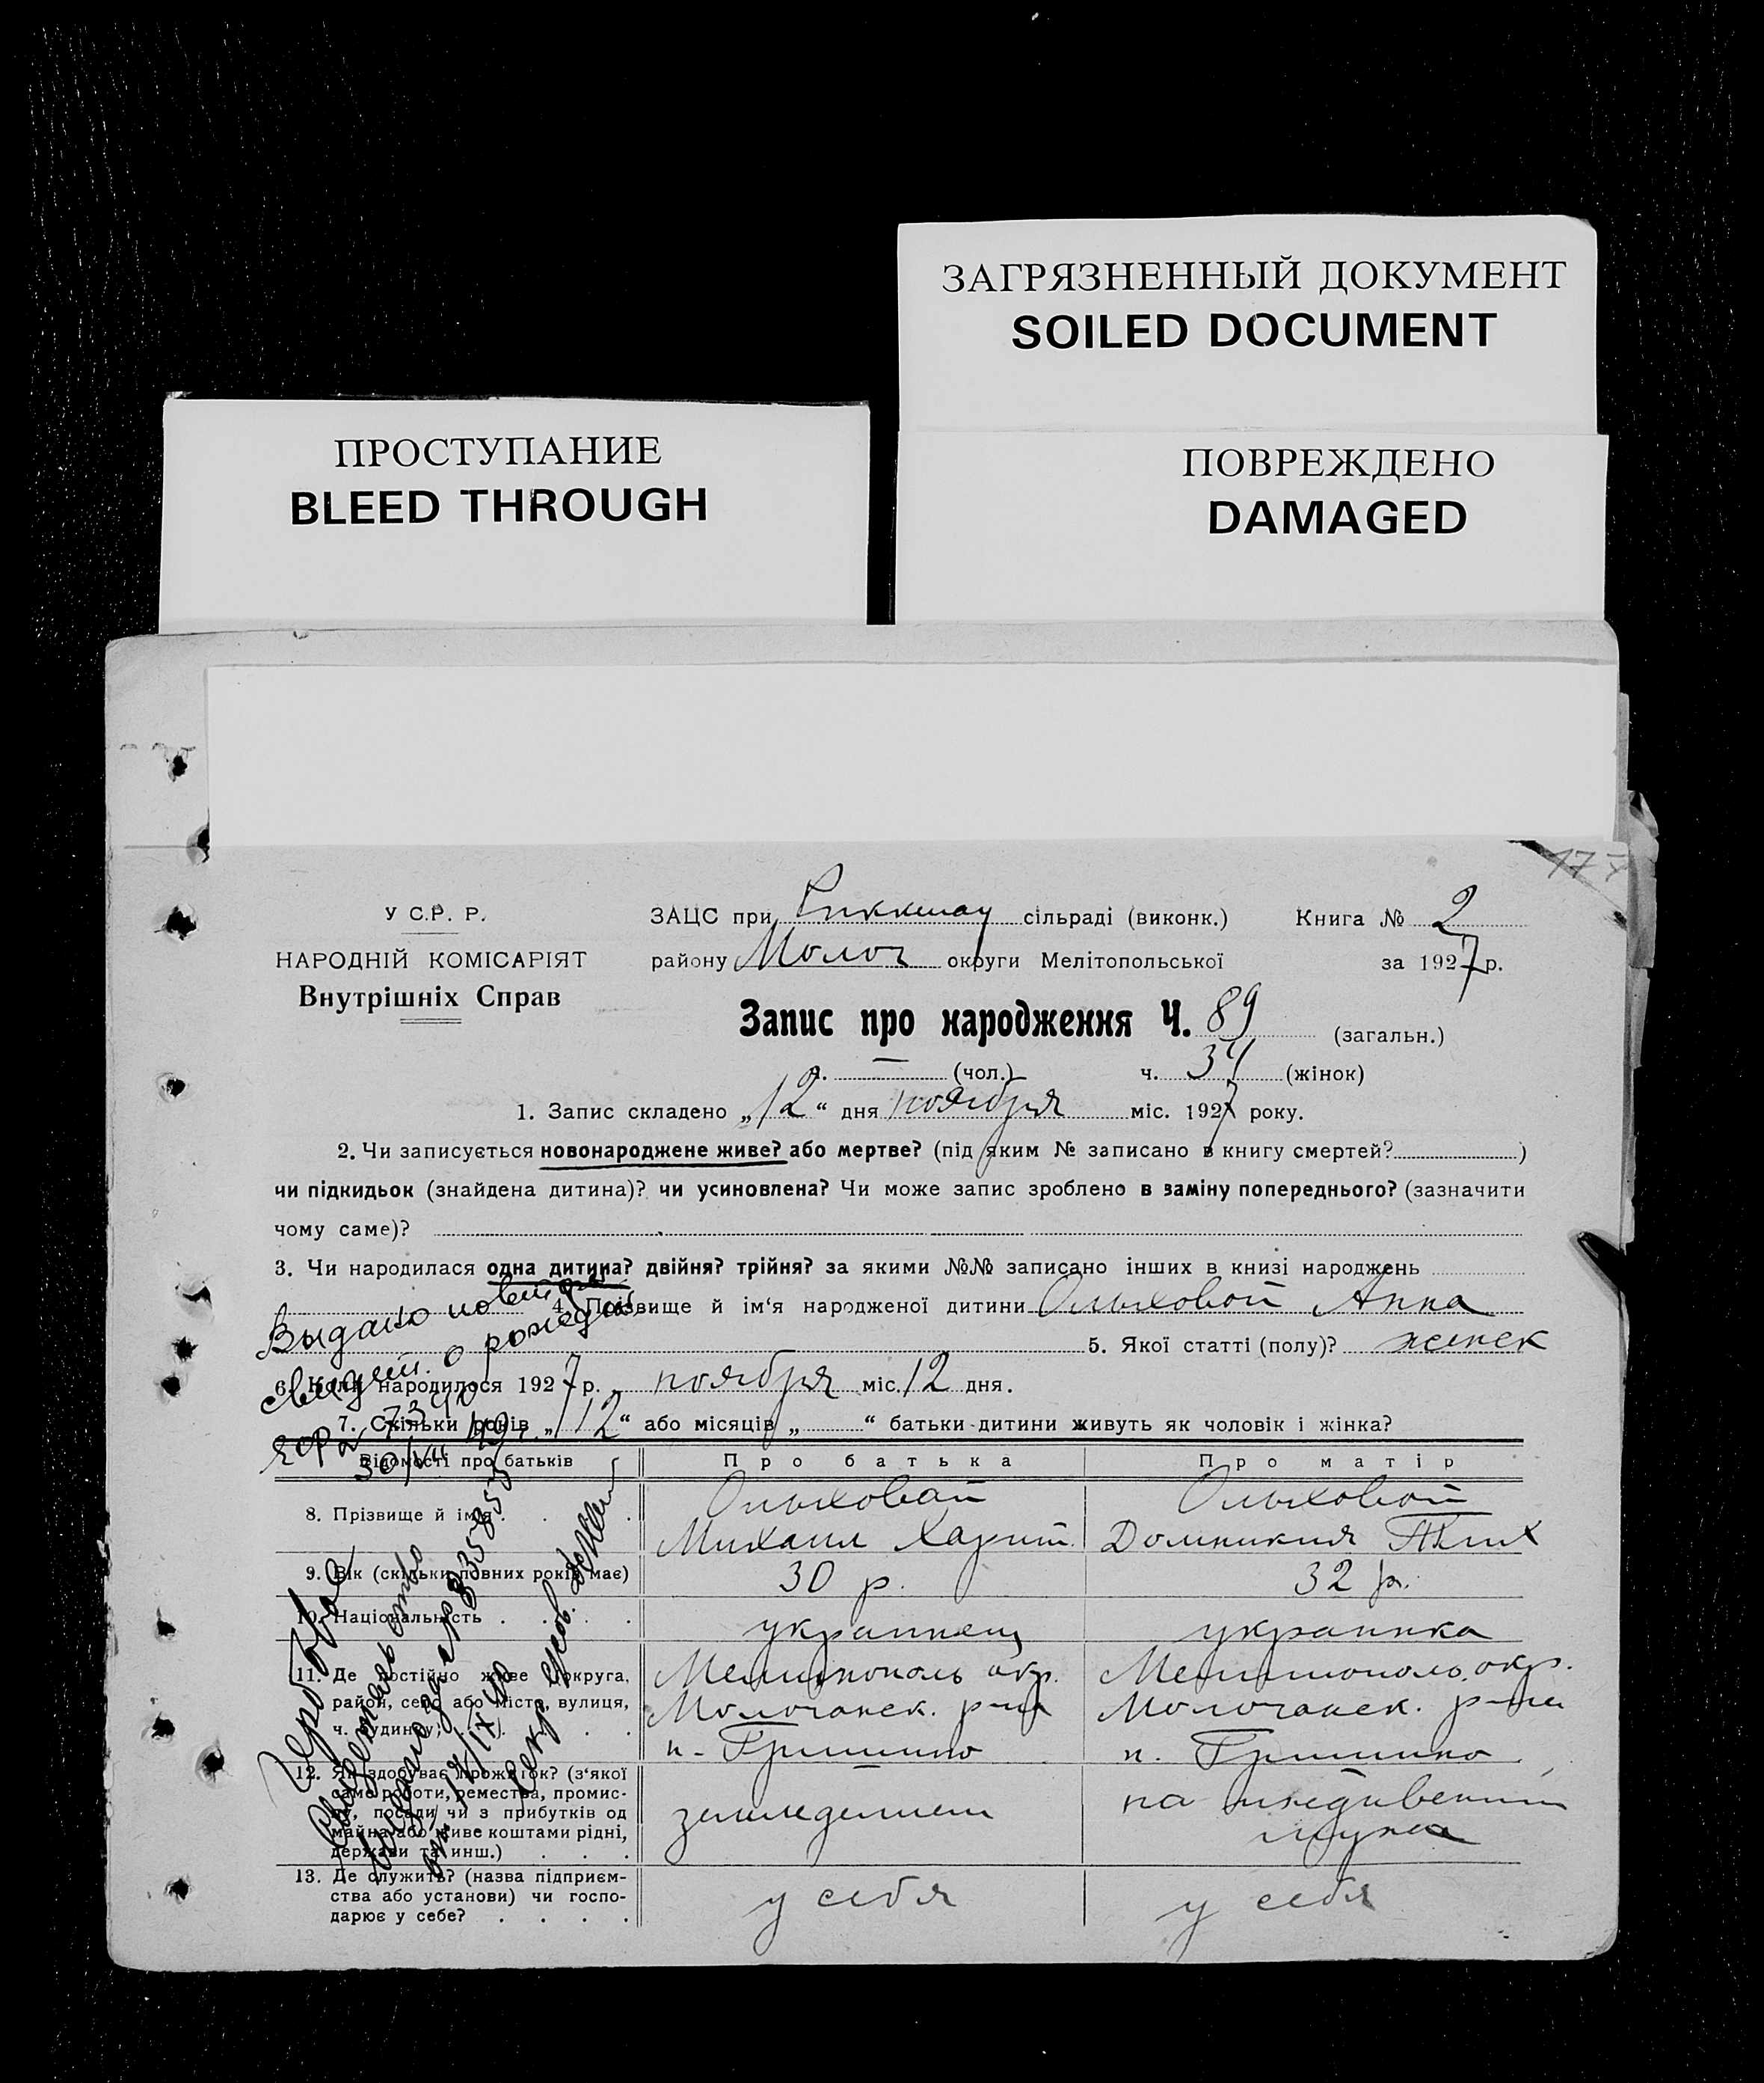 ЗАГРЯЗНЕННЫЙ ДОКУМЕНТ
SOILED DOCUMENT
ПРОСТУПАНИЕ
BLEED THROUGH
ПОВРЕЖДЕНО
DAMAGED
177
У С.Р. Р.
НАРОДНІЙ КОМІСАРІЯТ
Внутрішніх Справ
ЗАЦС при сільраді (виконк.) Книга № 2
району Молоч округи Мелітопольської за 1927 р.
Запис про народження Ч. 89 (загальн.)
ч. — (чол.) ч. 34 (жінок)
1. Запис складено „12“ дня ноября міс. 1927 року.
2. Чи записується новонароджене живе? або мертве? (під яким № записано в книгу смертей? )
чи підкидьок (знайдена дитина)? чи усиновлена? Чи може запис зроблено в заміну попереднього? (зазначити
чому саме)?
3. Чи народилася одна дитина? двійня? трійня? за якими №№ записано інших в книзі народжень
4. Прізвище й ім‘я народженої дитини Ольховой Анна
5. Якої статті (полу)? женск
6. Коли народилося 1927 р. ноября міс. 12 дня.
7. Скільки років „12“ або місяців „ “ батьки дитини живуть як чоловік і жінка?
Выдано
свидет. о рожден
Відомості про батьків
Про батька
Про матір
8. Прізвище й ім‘я
Ольховой
Михаил Харит.
Ольховой
9. Вік (скільки повних років має)
30 р.
32 р.
10. Національність
украинец
украинка
11. Де постійно живе (округа,
район, село або місто, вулиця,
ч. будинку)
Мелитополь окр.
Молочанск. р-на
п. Гришино
Мелитополь. окр.
Молочанск. р-на
п. Гришино
12. Як здобуває прожиток? (з‘якої
саме роботи, ремества, промис-
лу, посади чи з прибутків од
майна або живе коштами рідні,
держави та инш.)
земледелием
на иждивении
мужа
13. Де служить? (назва підприєм-
ства або установи) чи госпо-
дарює у себе?
у себя
у себя